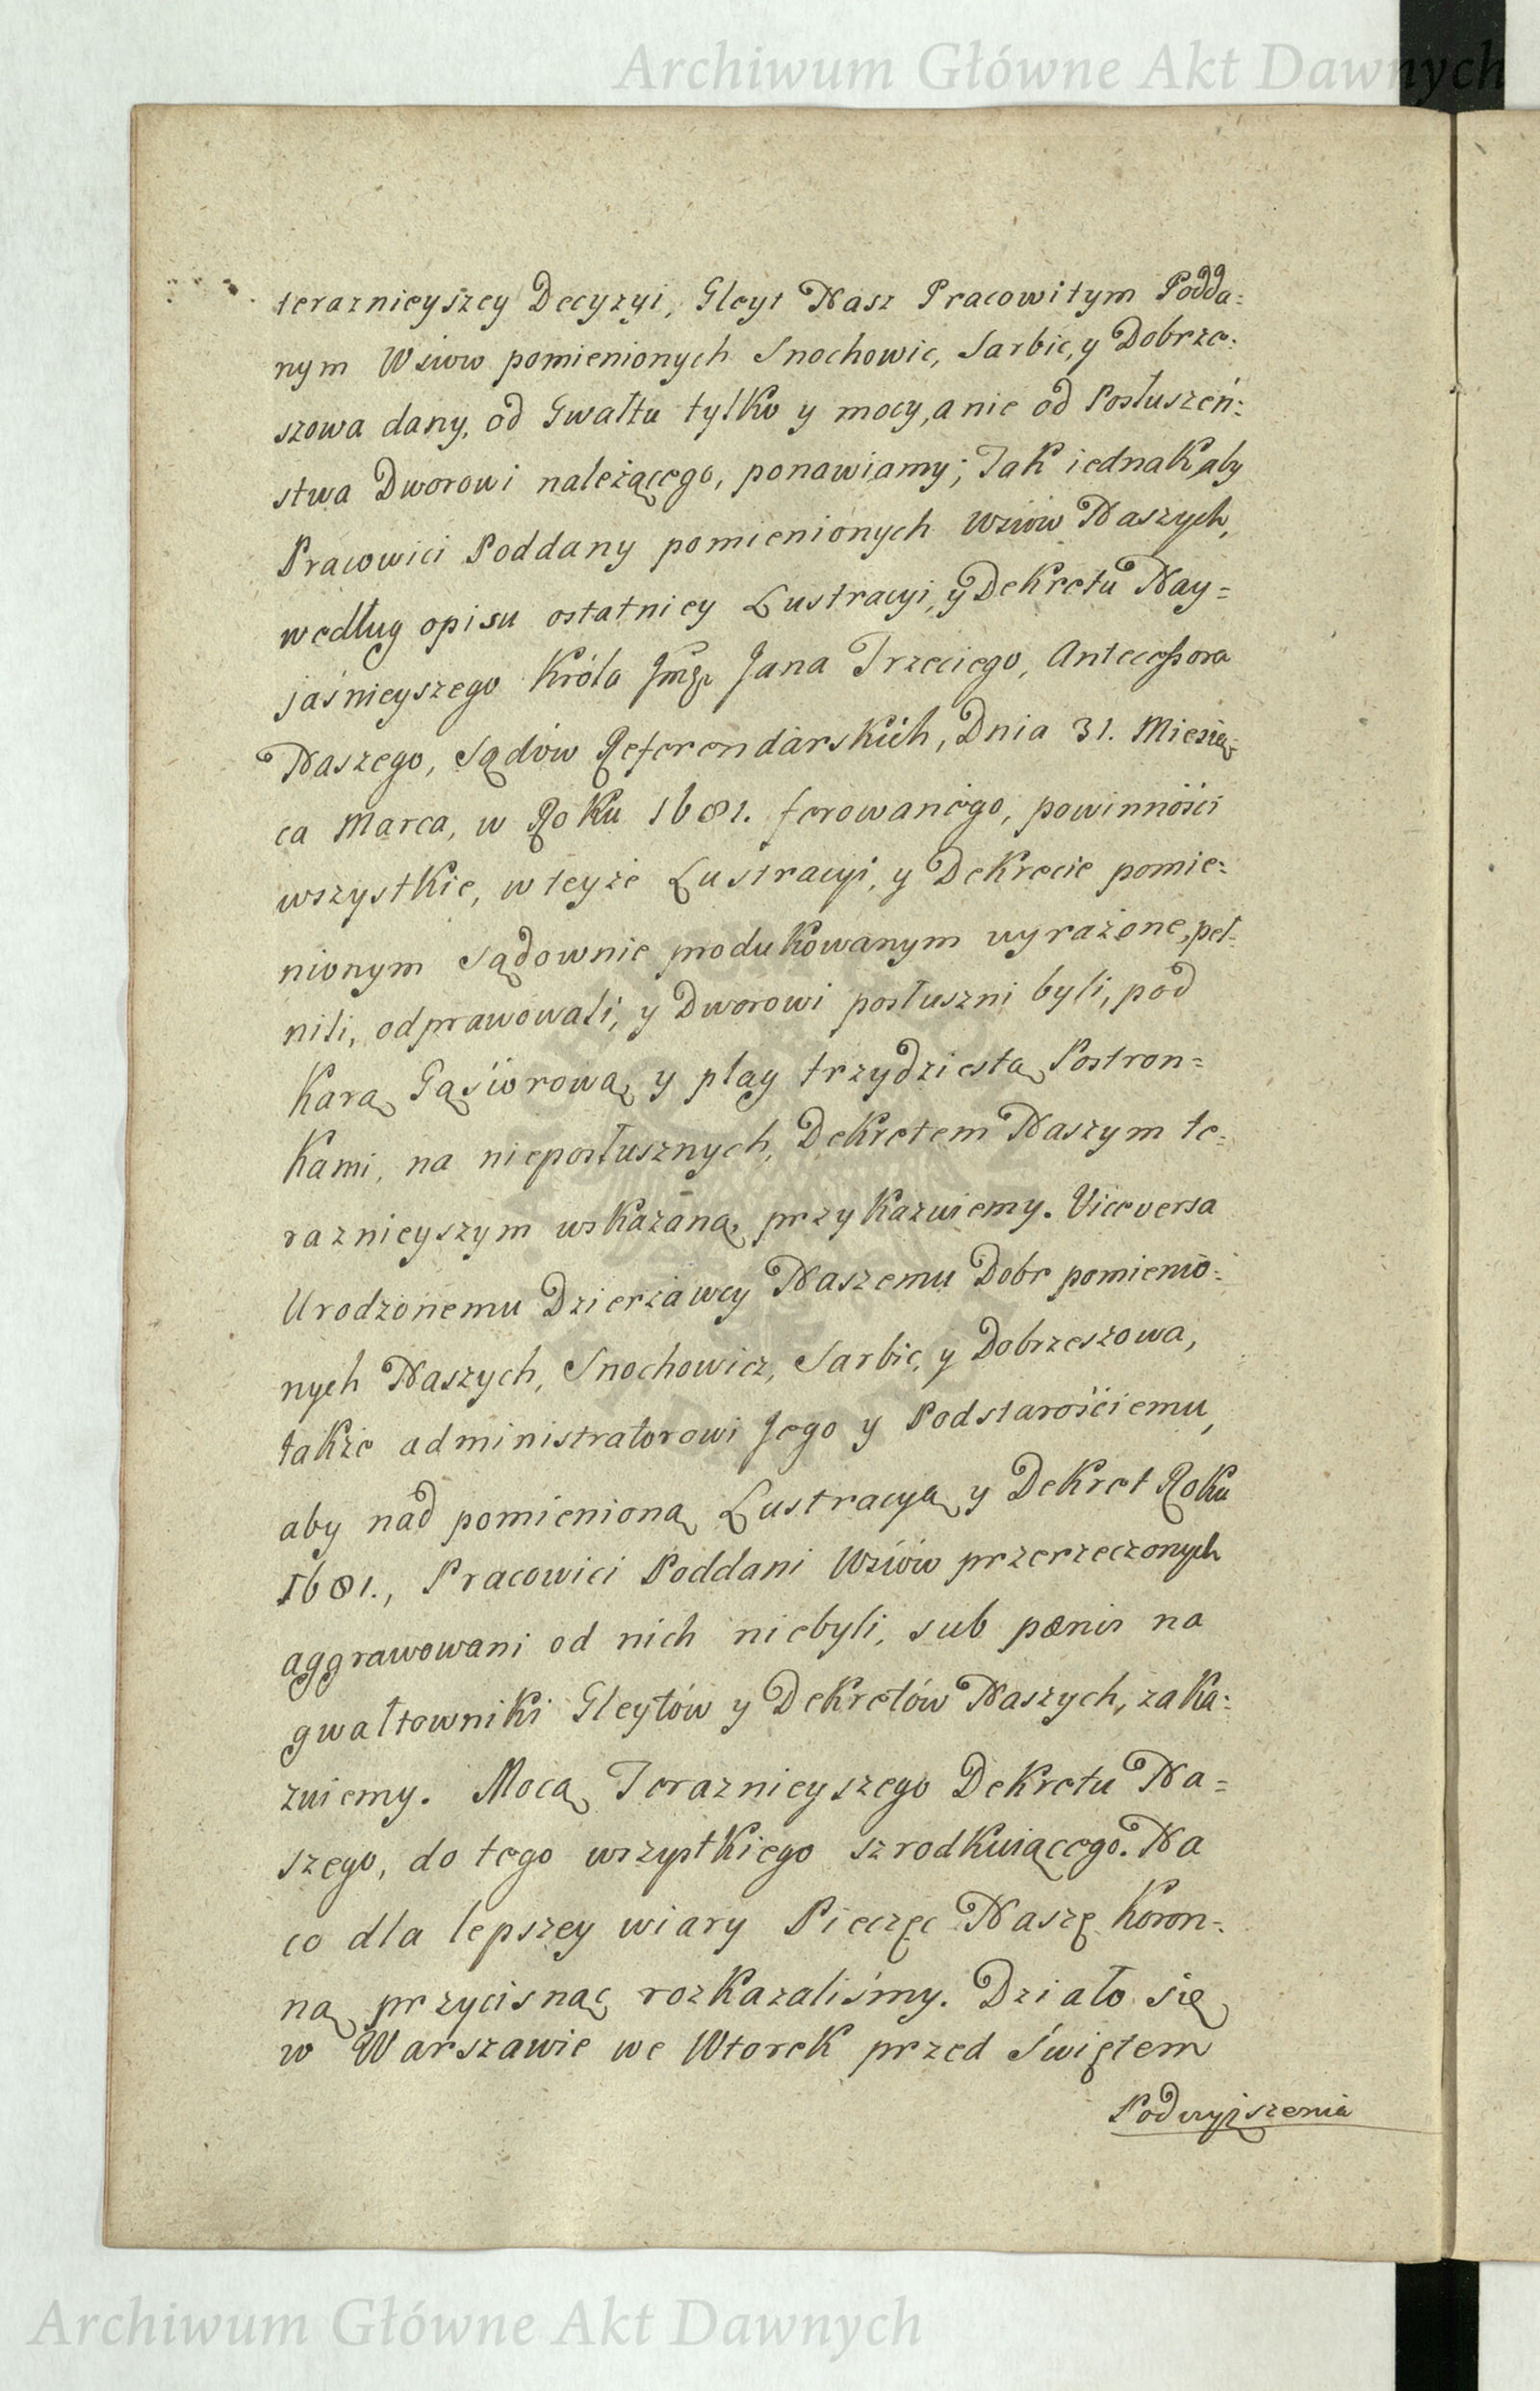 Archiwum Główne Akt Dawnych
teraznieyszey Decyzyi, Gleyt Nasz Pracowitym Podda=
nym Wsiow pomienionych Snochowic, Sarbic, y Dobrze=
szowa dany, od Gwałtu tylko y mocy, a nie od Posłuszeń=
stwa Dworowi należącego, ponawiamy; Tak iednak aby
Pracowici Poddany pomienionych Wsiów Naszych,
według opisu ostatniey Lustracyi, y Dekretu Nay=
jaśnieyszego Króla Jmści Jana Trzeciego, Antecessora
Naszego, Sądów Referendarskich, Dnia 31. Miesią=
ca Marca, w Roku 1681. ferowanégo, powinnósci
wszystkie, w teyże Lustracyi, y Dekrecie pomie=
nionym Sądownie produkowanym wyrażone, peł=
nili, odprawowali, y Dworowi posłuszni byli, pod
Karą Gąsiorową y plag trzydziestą Postron=
kami, na nieposłusznych, Dekretem Naszym te=
raznieyszym wskazaną, przykazuiemy. Vice versa
Urodzonemu Dzierżawcy Naszemu Dobr pomienio=
nych Naszych, Snochowicz, Sarbic, y Dobrzeszowa,
także administratorowi Jego y Podstarościemu,
aby nad pomienioną Lustracyą y Dekret Roku
1681., Pracowici Poddani Wsiów przerzeczonych
aggrawowani od nich niebyli, sub pænis na
gwałtowniki Gleytów y Dekretów Naszych, zaka=
zuiemy. Mocą Teraznieyszego Dekretu Na=
szego, do tego wszystkiego szrodkuiącego. Na
co dla lepszey wiary Pieczęc Naszę Koron=
ną przycisnąc rozkazaliśmy. Działo się
w Warszawie we Wtorek przed Świętem
Podwyższenia
Archiwum Główne Akt Dawnych